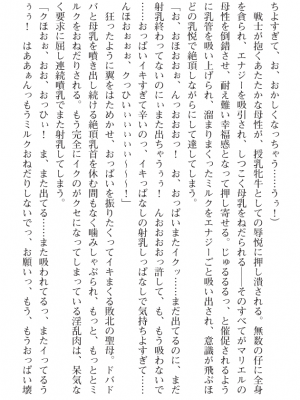 ちよすぎて、お、おかしくなっちゃう……うぅ！
　戦士が抱くあたたかな母性が、授乳牝牛としての辱悦に押し潰される。無数の仔に全身
を食られ、エナジーを吸引され、しつこく母乳をねだられる――そのすべてがマリエルの
母性を倒錯させ、耐え難い幸福感となって押し寄せる。じゅるるるっ、と催促されるよう
に乳管を吸い上げられ、溜まりまくったミルクをエナジーごと吸い出され、意識が飛ぶほ
どの乳悦で絶頂しながらにして達してしまう。
「お、おほぉぉぉ、んっおぉぉっ！　お、おっぱいまたイクッ……まだ出てるのに、まだ
射乳終わってないのにぃまた出ちゃうぅぅ！　んおぉおおっ許して、も、もう吸わないで
……おっぱいイキすぎて辛いのっ、イキっぱなしの射乳しっぱなしで気持ちよすぎて……
んほぉぉぉぉ、クっひぃぃぃぃぃぃ～～～！」
　狂ったように翼をはためかせ、おっぱいを振りたくってイキまくる敗北の聖母。ドバド
バと母乳を噴き出し続ける絶頂乳首を休む間もなく噛みしゃぶられ、もっと、もっととミ
ルクをおねだりされる。もう完全にイクのがクセになってしまっている淫乱肉は、呆気な
く要求に屈し連続噴乳でまた射乳してしまう。
「クほぉぉ、おぉ、おっひぃ！　ま、また出てる……また吸われてるっ、またイってるう
ぅぅ！　はあぁぁんっもうミルクおねだりしないでっ、お願いっ、もう、もうおっぱい壊